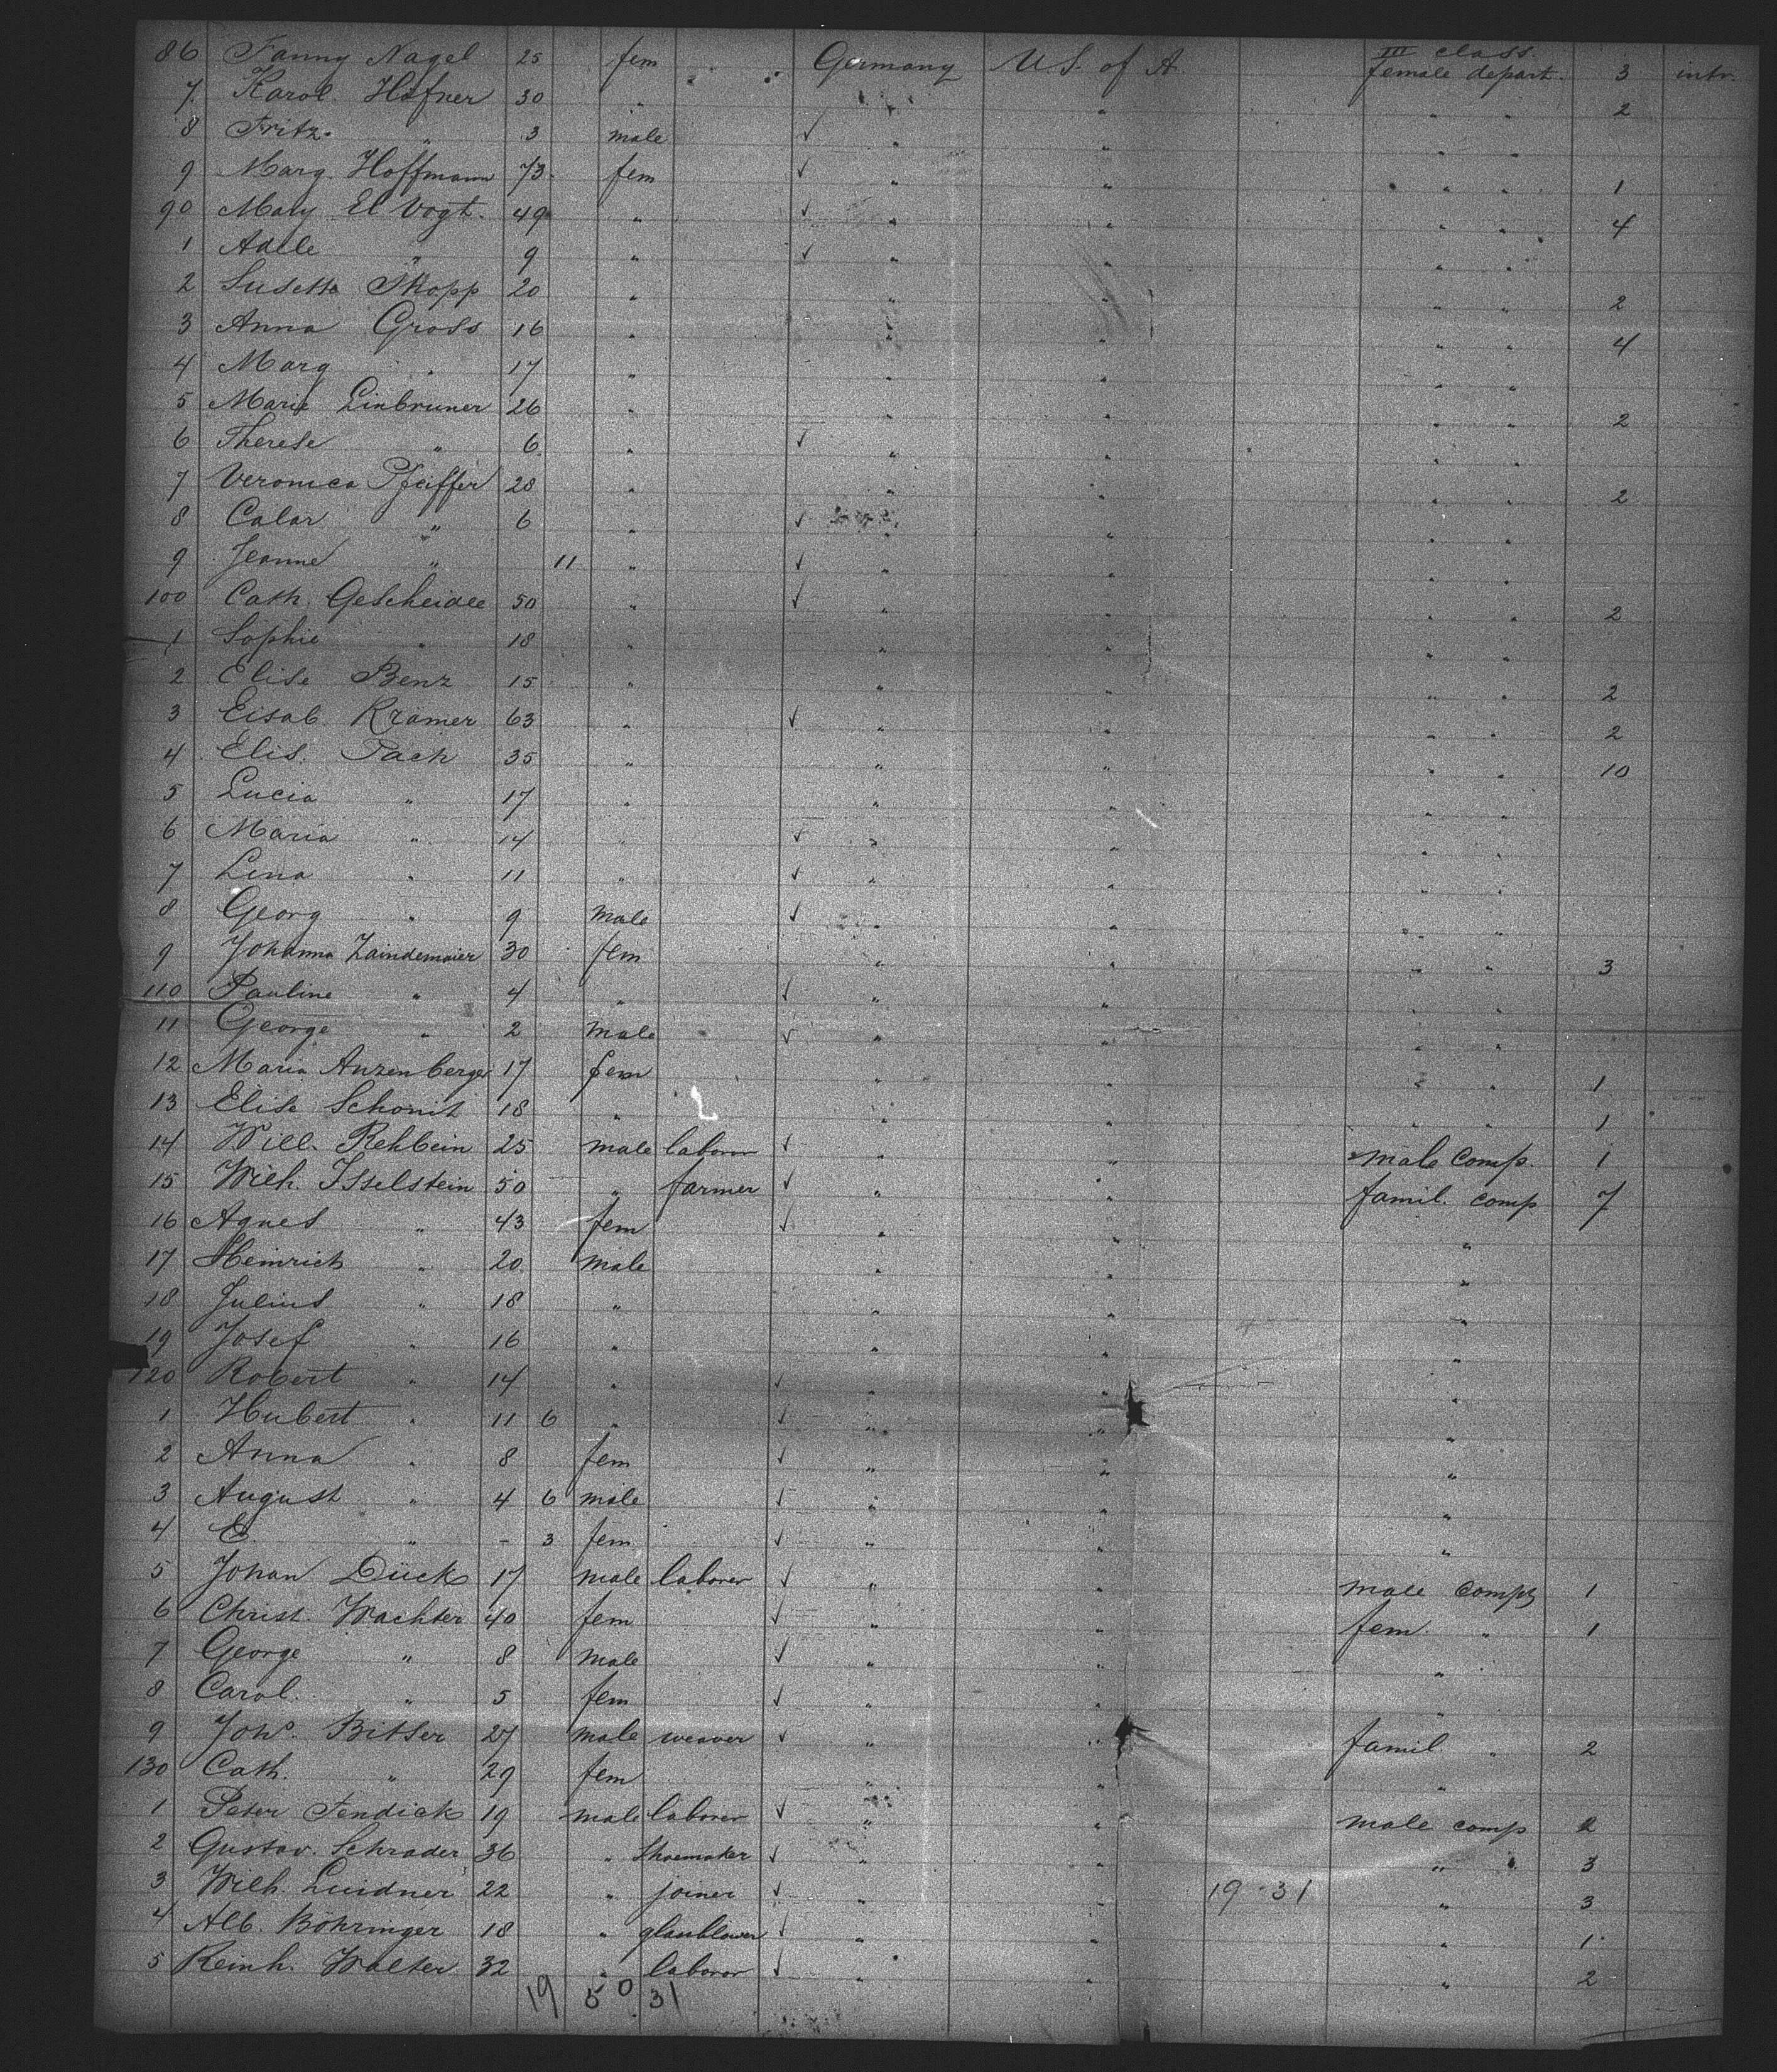 86 Fanny Nagel 25 fem " Germany U.S. of A. III class. female depart. 3 intr.
7. Karol. Hofner 30 " " " " " 2
8 Fritz " 3 male ✓ " " " "
9 Marg. Hoffmann 73 fem ✓ " " " " 1
90 Mary El Vogt. 49 " ✓ " " " " 4
1 Adele " 9 " ✓ " " " "
2 Susette 20 " " " " " 2
3 Anna Gross 16 " " " " " 4
4 Marg " 17 " " " " "
5 Marie Linbruner 26 " " " " " 2
6 Therese " 6 " ✓ " " " "
7 Veronica Pfeiffer 28 " " " " " 2
8 Calar " 6 " ✓ " " " "
9 Jeanne " 11 " ✓ " " " "
100 Cath. Gescheidle 50 " ✓ " " " " 2
1 Sophie " 18 " " " " "
2 Elise Benz 15 " " " " " 2
3 Eisab. Krämer 63 " ✓ " " " " 2
4 Elis. Pach 35 " " " " " 10
5 Lucia " 17 " " " " "
6 Maria " 14 " ✓ " " " "
7 Lina " 11 " ✓ " " " "
8 Georg " 9 male ✓ " " " "
9 Johanna Zaindemaier 30 fem " " " " 3
110 Pauline " 4 " ✓ " " " "
11 George " 2 male ✓ " " " "
12 Maria Anzenberger 17 fem " " " " 1
13 Elise Schonit 18 " " " " " 1
14 Will. Rehbein 25 male laborer ✓ " " male comp. 1
15 Wilh. Isselstein 50 " farmer ✓ " " famil. comp 7
16 Agnes " 43 fem ✓ " " "
17 Heinrich " 20 male " " "
18 Julius " 18 " " " "
19 Josef " 16 " " " "
120 Robert " 14 " ✓ " " "
1 Hubert " 11 6 " ✓ " " "
2 Anna " 8 fem ✓ " " "
3 August " 4 6 male ✓ " " "
4 E. " - 3 fem ✓ " " "
5 Johan Dück 17 male laborer ✓ " " male comp 1
6 Christ. Wachter 40 fem ✓ " " fem. " 1
7 George " 8 male ✓ " " "
8 Carol. " 5 fem ✓ " " "
9 Joh. Bitser 27 male weaver ✓ " " famil. " 2
130 Cath. " 29 fem " " "
1 Peter Fendick 19 male laborer ✓ " " male comp 2
2 Gustav. Schrader 36 " Shoemaker ✓ " " " " 3
3 Wilh. Luidner 22 " joiner ✓ " " 19-31 " 3
4 Alb. Böhringer 18 " glasblower ✓ " " " 1
5 Reinh. Walter 32 " laborer ✓ " " " 2
19 50 31